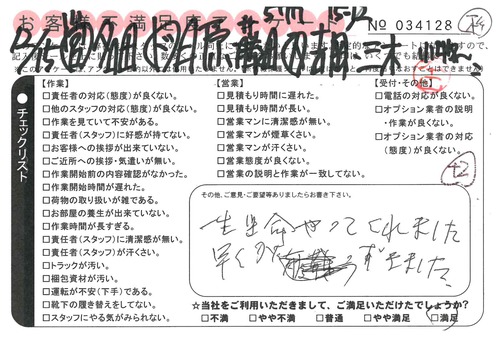 お客様不満足度
№ 034128
チェックリスト
【作業】
□責任者の対応(態度)が良くない。
□他のスタッフの対応(態度)が良くない。
□作業を見ていて不安がある。
□責任者(スタッフ)に好感が持てない。
□お客様への挨拶が出来ていない。
□ご近所への挨拶・気遣いが無い。
□作業開始前の内容確認がなかった。
□作業開始時間が遅れた。
□荷物の取り扱いが雑である。
□お部屋の養生が出来ていない。
□作業時間が長すぎる。
□責任者(スタッフ)に清潔感が無い。
□責任者(スタッフ)が汗くさい。
□トラックが汚い。
□梱包資材が汚い。
□運転が不安(下手)である。
□靴下の履き替えをしてない。
□スタッフにやる気がみられない。
【営業】
□見積もり時間に遅れた。
□見積もり時間が長い。
□営業マンに清潔感が無い。
□営業マンが煙草くさい。
□営業マンが汗くさい。
□営業態度が良くない。
□営業の説明と作業が一致してない。
【受付・その他】
□電話の対応が良くない。
□オプション業者の説明
・作業が良くない。
□オプション業者の対応
(態度)が良くない。
+2
その他、ご意見・ご要望等ありましたらお書き下さい。
一生懸命やってくれました
早く
☆当社をご利用いただきまして、ご満足いただけたでしょうか?
□不満 □やや不満 □普通 □やや満足 □満足